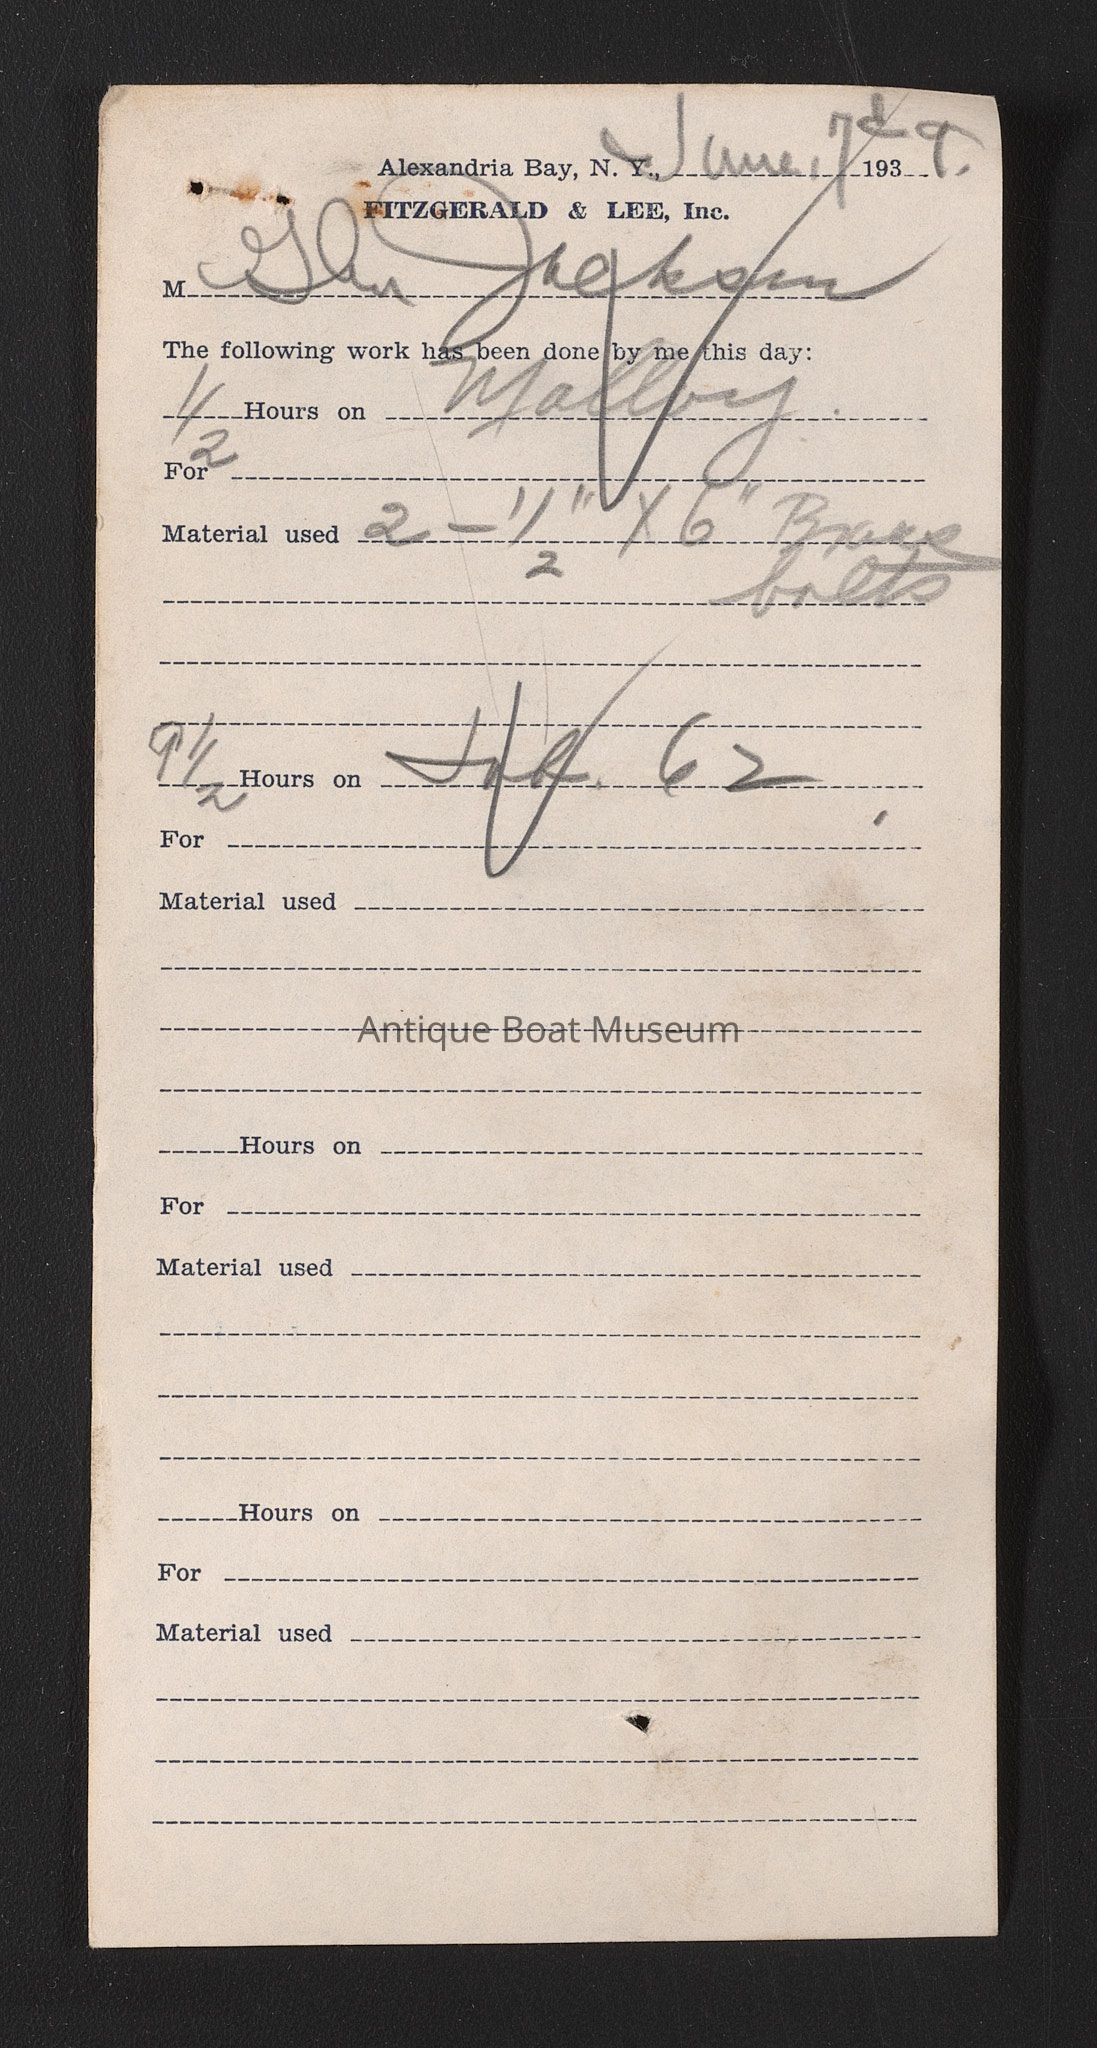 Alexandria Bay, N. Y., June 7 1939.
FITZGERALD & LEE, Inc.
M Glen Jackson
The following work has been done by me this day:
1/2 Hours on Malloy.
For
Material used 2 - 1/2" X 6" Brass
bolts
9 1/2 Hours on Job. 62
For
Material used
Antique Boat Museum
Hours on
For
Material used
Hours on
For
Material used